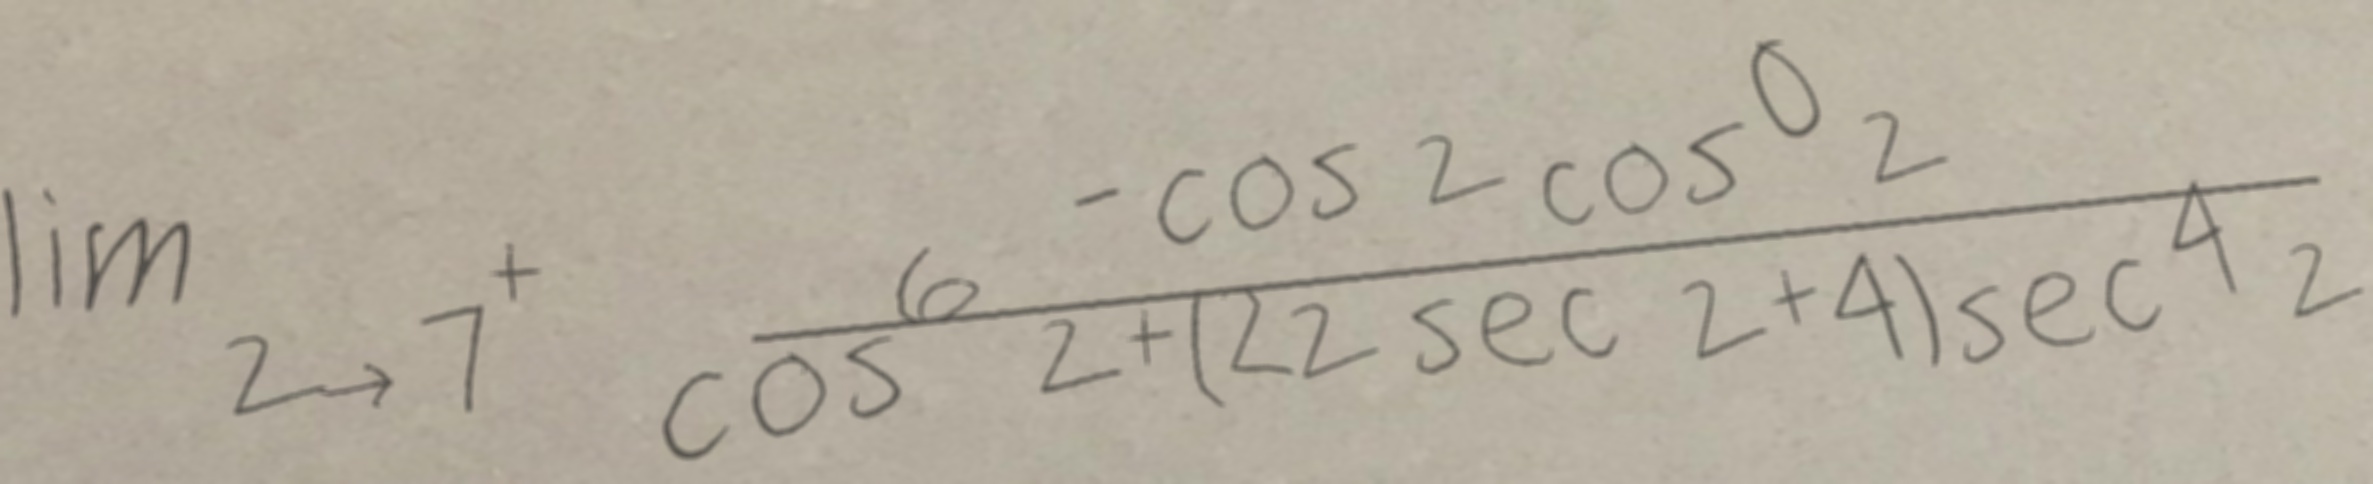 \lim_{z \to 7^+} \frac{-\cos z \cos^0 z}{\cos^6 z + (2z \sec z + 4) \sec^4 z}